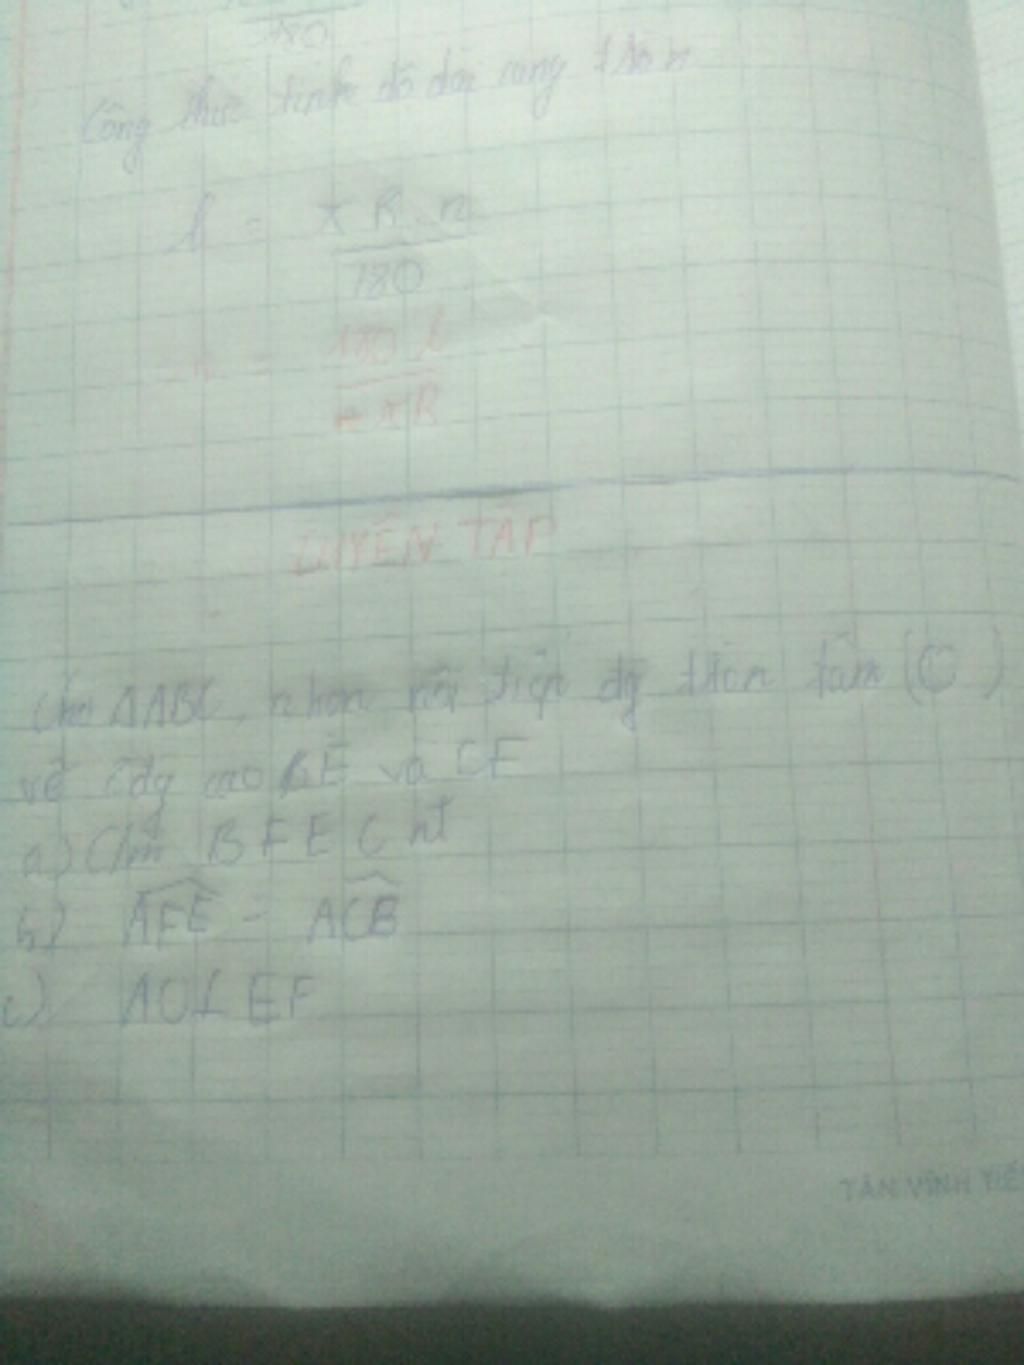 180
Công thức tính độ dài cung tròn
l = π R n
180
n = 180 l
π R
LUYỆN TẬP
Cho ΔABC, nhọn nội tiếp đg tròn tâm (O)
vẽ cao BE và CF
a) Cm BFEC nt
b) AFE = ACB
c) AO⊥EF
TÂN VĨNH TIẾ